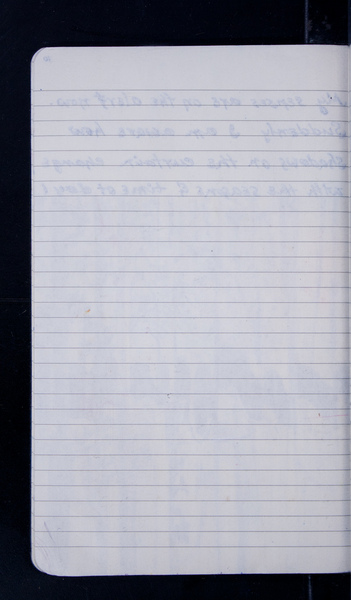 My senses are on the alert now.
Suddenly I am aware how
shadows on the curtain change
with the seasons & time of day!